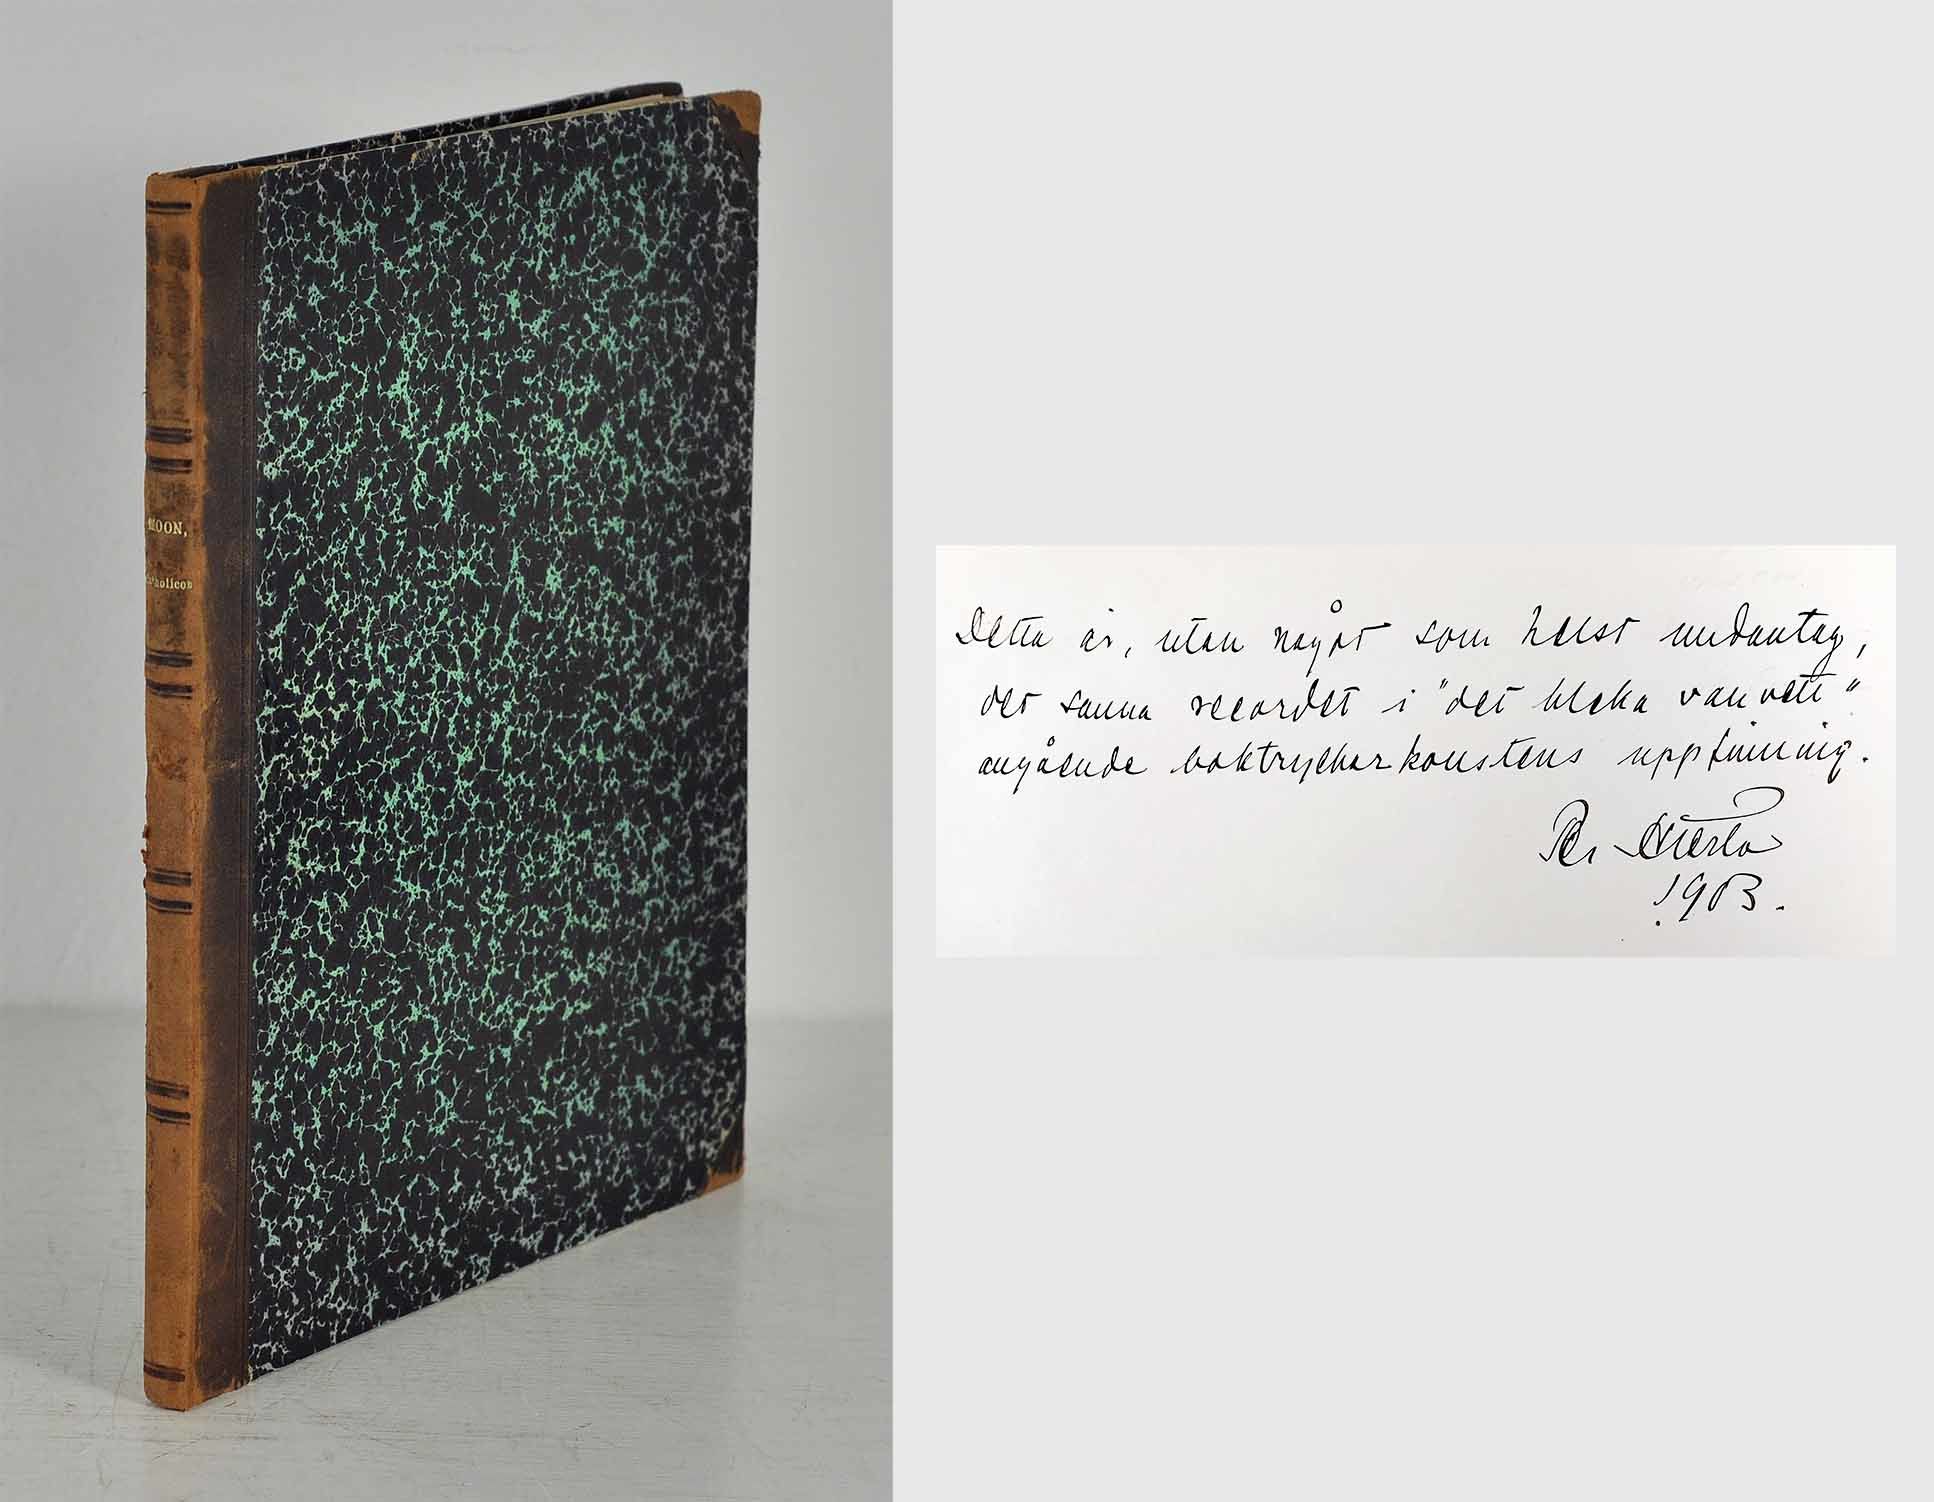 MOON,
Catholicon
Detta är, utan något som helst undantag,
det sanna recordet i "det bleka vanvett"
angående boktryckarkonstens uppfinning.
Per Hierta
1903.